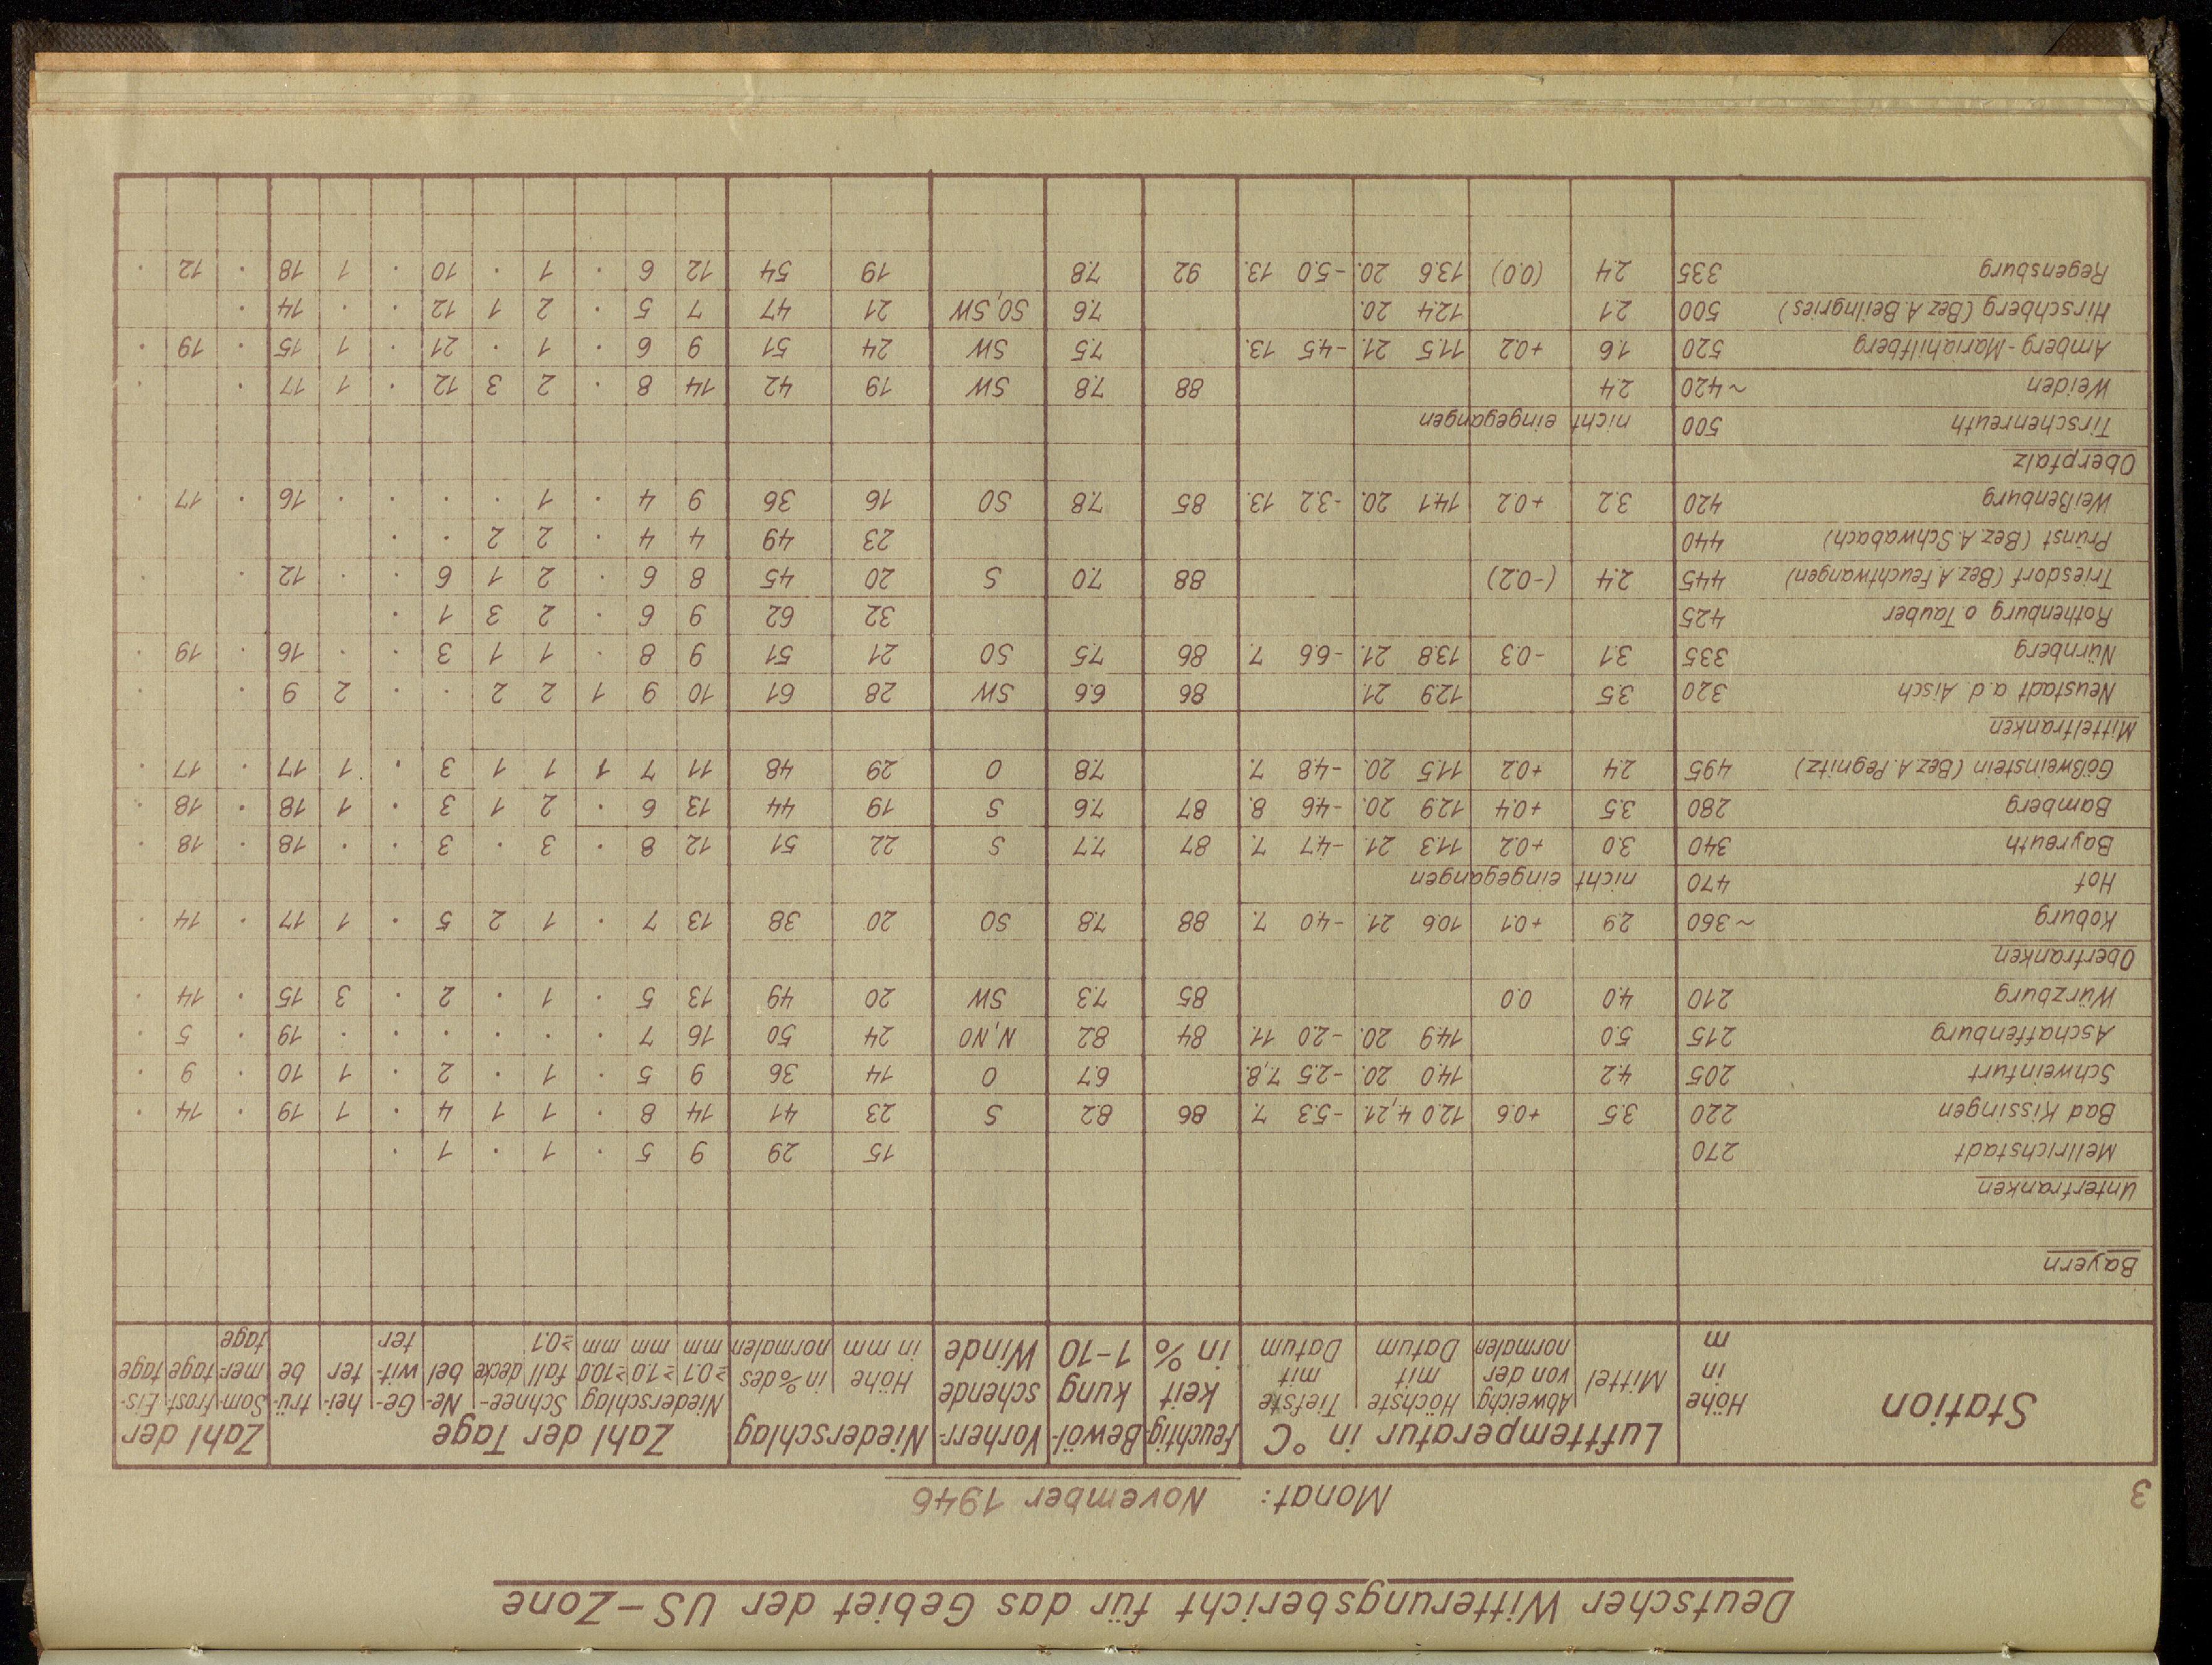 Deutscher Witterungsbericht für das Gebiet der US-Zone
3 Monat: November 1946
Station Höhe in m Lufttemperatur in °C Feuchtig- keit in % Bewöl- kung 1-10 Vorherr- schende Winde Niederschlag Zahl der Tage Zahl der
Mittel Abweichg von der normalen Höchste mit Datum Tiefste mit Datum Höhe in mm in % des normalen Niederschlag ≥0.1 mm ≥1.0 mm ≥10.0 mm Schnee- fall ≥0.1 decke Ne- bel Ge- wit- ter hei- ter trü- be Som- mer- tage Frost- tage Eis- tage
Bayern
Unterfranken
Mellrichstadt 270 15 29 9 5 . 1 . 1 .
Bad Kissingen 220 3.5 +0.6 12.0 4,21. -5.3 7. 86 8.2 S 23 41 14 8 . 1 1 4 . 1 19 . 14 .
Schweinfurt 205 4.2 14.0 20. -2.5 7,8. 6.7 O 14 36 9 5 . 1 . 2 . 1 10 . 9 .
Aschaffenburg 215 5.0 14.9 20. -2.0 11. 84 8.2 N, NO 24 50 16 7 . . . . . . 19 . 5 .
Würzburg 210 4.0 0.0 85 7.3 SW 20 49 13 5 . 1 . 2 . 3 15 . 14 .
Oberfranken
Koburg ~360 2.9 +0.1 10.6 21. -4.0 7. 88 7.8 SO 20 38 13 7 . 1 2 5 . 1 17 . 14 .
Hof 470 nicht eingegangen
Bayreuth 340 3.0 +0.2 11.3 21. -4.7 7. 87 7.7 S 22 51 12 8 . 3 . 3 . . 18 . 18 .
Bamberg 280 3.5 +0.4 12.9 20. -4.6 8. 87 7.6 S 19 44 13 6 . 2 1 3 . 1 18 . 18 .
Gößweinstein (Bez A. Pegnitz) 495 2.4 +0.2 11.5 20. -4.8 7. 7.8 O 29 48 11 7 1 1 1 3 . 1 17 . 17 .
Mittelfranken
Neustadt a.d. Aisch 320 3.5 12.9 21. 86 6.6 SW 28 61 10 9 1 2 2 . . 2 9 . .
Nürnberg 335 3.1 -0.3 13.8 21. -6.6 7. 86 7.5 SO 21 51 9 8 . 1 1 3 . . 16 . 19 .
Rothenburg o. Tauber 425 32 62 9 6 . 2 3 1 .
Triesdorf (Bez A. Feuchtwangen) 445 2.4 (-0.2) 88 7.0 S 20 45 8 6 . 2 1 6 . . 12 . .
Prünst (Bez A. Schwabach) 440 23 49 4 4 . 2 2 . .
Weißenburg 420 3.2 +0.2 14.1 20. -3.2 13. 85 7.8 SO 16 36 9 4 . 1 . . . . 16 . 17 .
Oberpfalz
Tirschenreuth 500 nicht eingegangen
Weiden ~420 2.4 88 7.8 SW 19 42 14 8 . 2 3 12 . 1 17 . .
Amberg-Mariahilfberg 520 1.6 +0.2 11.5 21. -4.5 13. 7.5 SW 24 51 9 6 . 1 . 21 . 1 15 . 19 .
Hirschberg (Bez A. Beilngries) 500 2.1 12.4 20. 7.6 SO, SW 21 47 7 5 . 2 1 12 . . 14 .
Regensburg 335 2.4 (0.0) 13.6 20. -5.0 13. 92 7.8 19 54 12 6 . 1 . 10 . 1 18 . 12 .